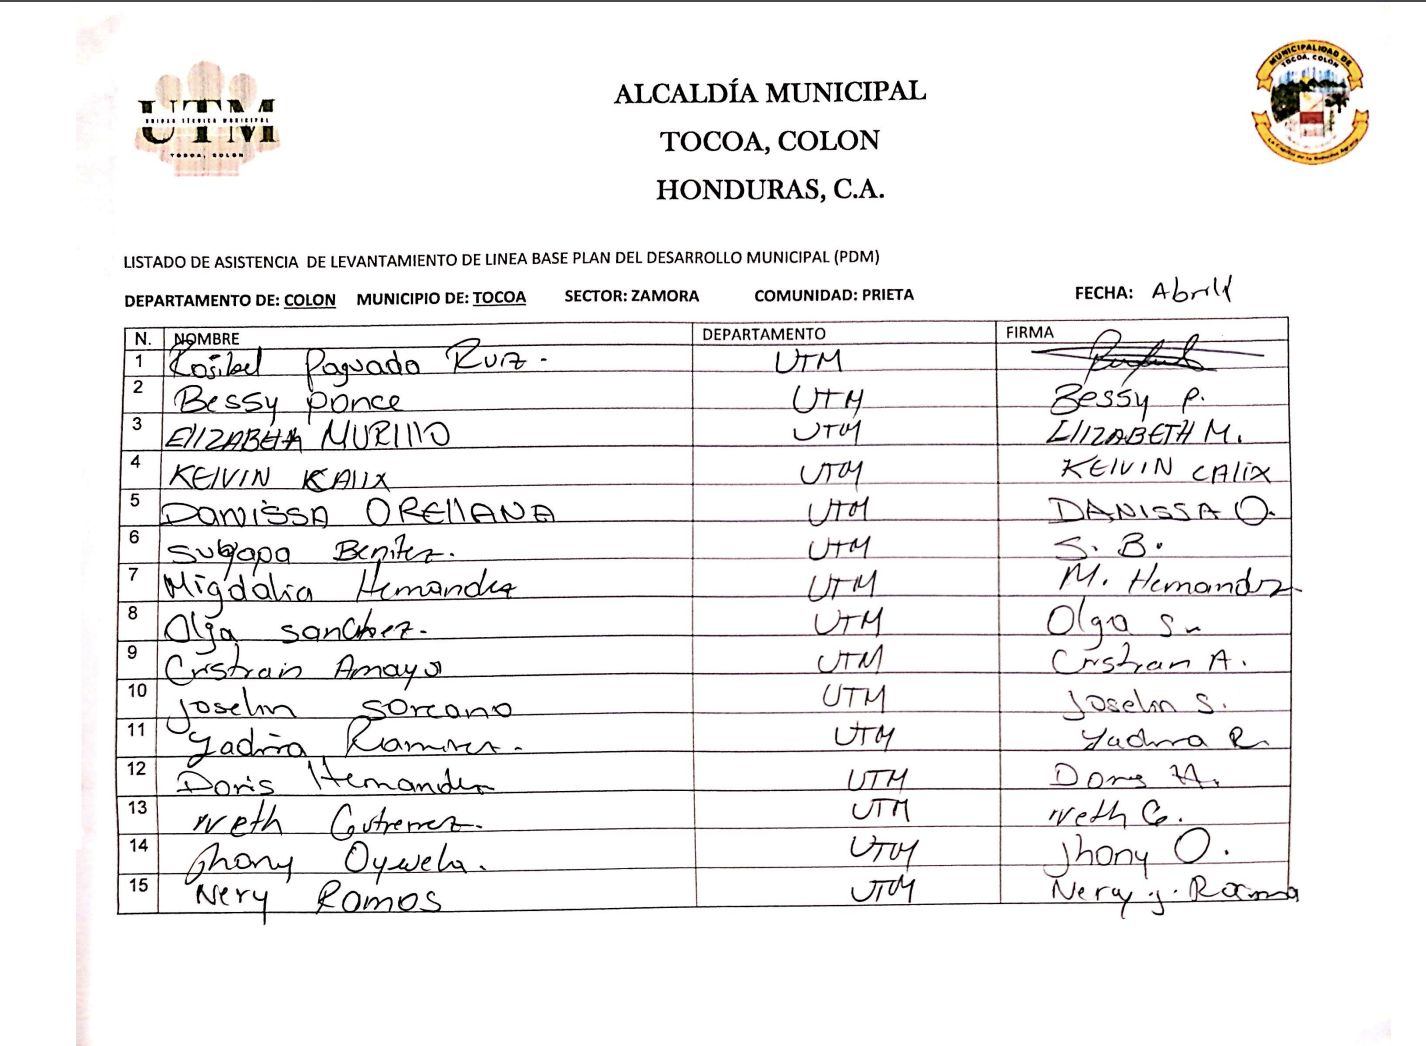 UTM
UNIDAD TÉCNICA MUNICIPAL
TOCOA, COLON
MUNICIPALIDAD DE
TOCOA, COLON
La Capital de la Reforma Agraria
ALCALDÍA MUNICIPAL
TOCOA, COLON
HONDURAS, C.A.
LISTADO DE ASISTENCIA DE LEVANTAMIENTO DE LINEA BASE PLAN DEL DESARROLLO MUNICIPAL (PDM)
DEPARTAMENTO DE: COLON MUNICIPIO DE: TOCOA SECTOR: ZAMORA COMUNIDAD: PRIETA FECHA: Abril
N. NOMBRE DEPARTAMENTO FIRMA
1 Rosibel Paguada Ruiz - UTM
2 Bessy ponce UTM Bessy P.
3 ElIZABEtA MURIllO UTM ElIZABETH M.
4 KElVIN KAlIX UTM KElVIN CAlIX
5 DANISSA OREllANA UTM DANISSA O.
6 Benitez. UTM S. B.
7 Migdalia Hernandez UTM M. Hernandez
8 Olga sanchez. UTM Olga S.
9 Cristian Amaya UTM Cristian A.
10 Joselin Sorcano UTM Joselin S.
11 Yadira Ramirez. UTM Yadira R.
12 Doris Hernandez UTM Doris H.
13 Iveth Gutierrez. UTM Iveth G.
14 Jhony Oyuela. UTM Jhony O.
15 Nery Ramos UTM Nery j. Ramos